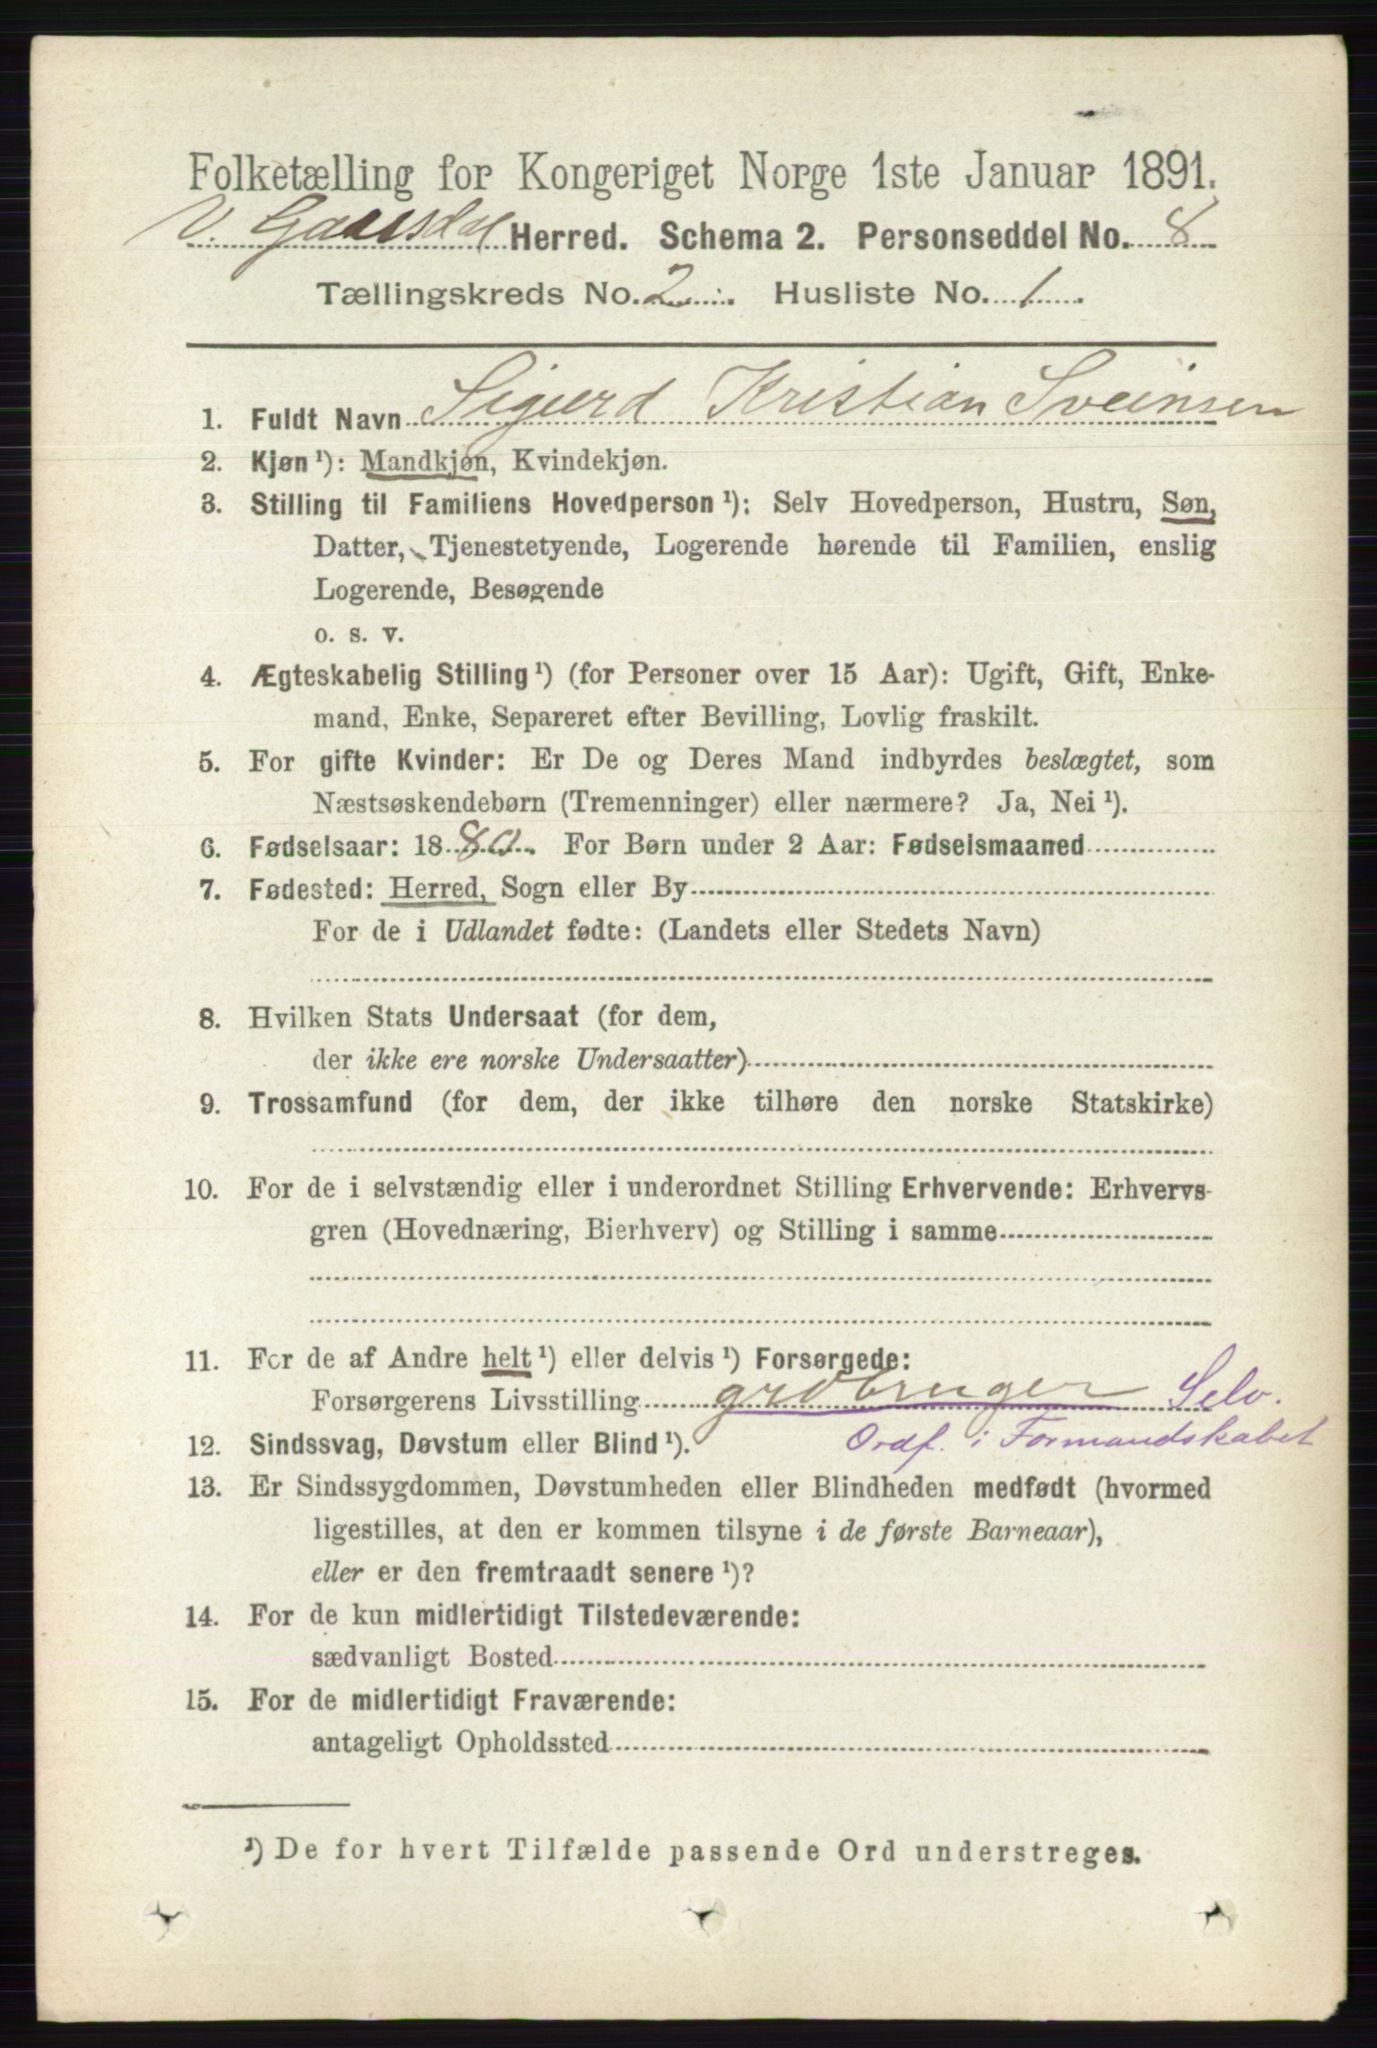 Folketælling for Kongeriget Norge 1ste Januar 1891.
V. Gausdal Herred. Schema 2. Personseddel No. 8
Tællingskreds No. 2. Husliste No. 1
1. Fuldt Navn Sigurd Kristian Sveinsen
2. Kjøn¹): Mandkjøn, Kvindekjøn.
3. Stilling til Familiens Hovedperson¹): Selv Hovedperson, Hustru, Søn,
Datter, Tjenestetyende, Logerende hørende til Familien, enslig
Logerende, Besøgende
o. s. v.
4. Ægteskabelig Stilling¹) (for Personer over 15 Aar): Ugift, Gift, Enke-
mand, Enke, Separeret efter Bevilling, Lovlig fraskilt.
5. For gifte Kvinder: Er De og Deres Mand indbyrdes beslægtet, som
Næstsøskendebørn (Tremenninger) eller nærmere? Ja, Nei¹).
6. Fødselsaar: 1880. For Børn under 2 Aar: Fødselsmaaned
7. Fødested: Herred, Sogn eller By
For de i Udlandet fødte: (Landets eller Stedets Navn)
8. Hvilken Stats Undersaat (for dem,
der ikke ere norske Undersaatter)
9. Trossamfund (for dem, der ikke tilhøre den norske Statskirke)
10. For de i selvstændig eller i underordnet Stilling Erhvervende: Erhvervs-
gren (Hovednæring, Bierhverv) og Stilling i samme
11. For de af Andre helt¹) eller delvis¹) Forsørgede:
Forsørgerens Livsstilling grdbruger Selv.
Ordf. i Formandskabet
12. Sindssvag, Døvstum eller Blind¹).
13. Er Sindssygdommen, Døvstumheden eller Blindheden medfødt (hvormed
ligestilles, at den er kommen tilsyne i de første Barneaar),
eller er den fremtraadt senere¹)?
14. For de kun midlertidigt Tilstedeværende:
sædvanligt Bosted
15. For de midlertidigt Fraværende:
antageligt Opholdssted
¹) De for hvert Tilfælde passende Ord understreges.